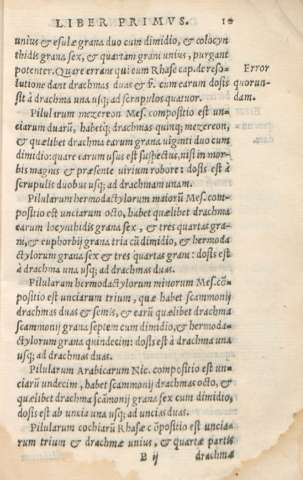 LIBER PRIMVS.
unius & esulæ grana duo cum dimidio, & colocyn
thidis grana sex, & quartam grani unius, purgant
potenter. Quare errant qui eum Rhase cap. de reso-
lutione dant drachmas duas & s. cum earum dosis
sit à drachma una usq; ad scrupulos quatuor.
Error
quorun-
dam.
Pilularum mezereon Mes. compositio est un-
ciarum duarū, habetq; drachmas quinq; mezereon,
& quælibet drachma earum grana uiginti duo cum
dimidio: quare earum usus est suspectus, nisi in mor-
bis magnis & præsente uirium robore: dosis est à
scrupulis duobus usq; ad drachmam unam.
Pilularum hermodactylorum maiorū Mes. com-
positio est unciarum octo, habet quælibet drachma
earum locynthidis grana sex, & tres quartas gra-
ni, & euphorbij grana tria cū dimidio, & hermoda
ctylorum grana sex & tres quartas grani: dosis est
à drachma una usq; ad drachmas duas.
Pilularum hermodactylorum minorum Mes. cō-
positio est unciarum trium, quæ habet scammonij
drachmas duas & semis, & earū quælibet drachma
scammonij grana septem cum dimidio, & hermoda-
ctylorum grana quindecim: dosis est à drachma una
usq; ad drachmas duas.
Pilularum Arabicarum Nic. compositio est un-
ciarū undecim, habet scammonij drachmas octo, &
quælibet drachma scāmonij grana sex cum dimidio,
dosis est ab uncia una usq; ad uncias duas.
Pilularum cochiarū Rhasæ cōpositio est uncia-
rum trium & drachmæ unius, & quartæ partis
B ij drachmæ